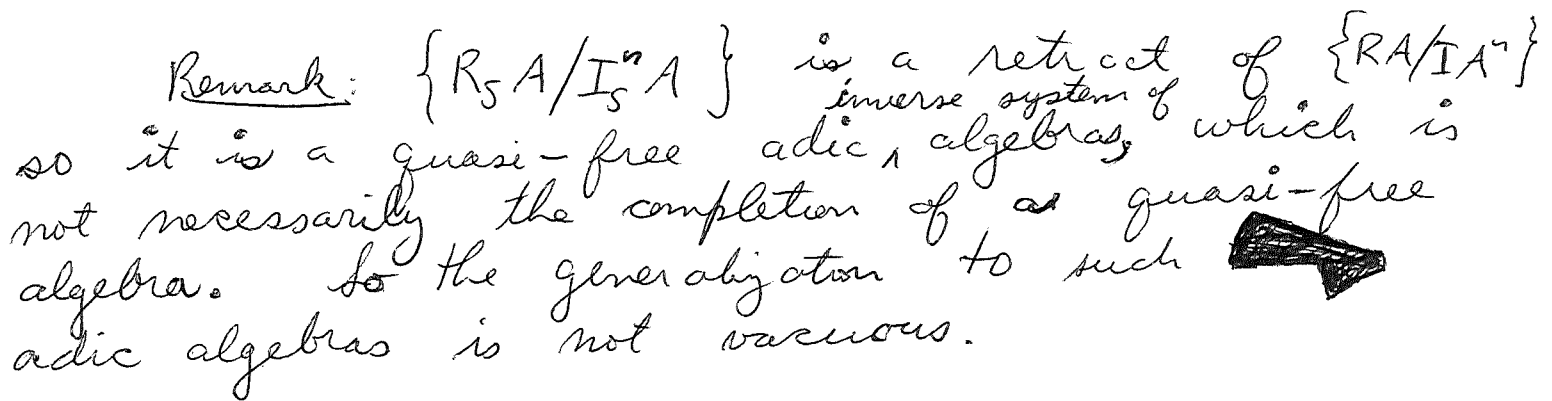 Remark: {R_S A/I_S^n A} is a retract of {RA/IA^n}
so it is a quasi-free adic ^ inverse system of algebras, which is
not necessarily the completion of a quasi-free
algebra. So the generalization to such
adic algebras is not vacuous.